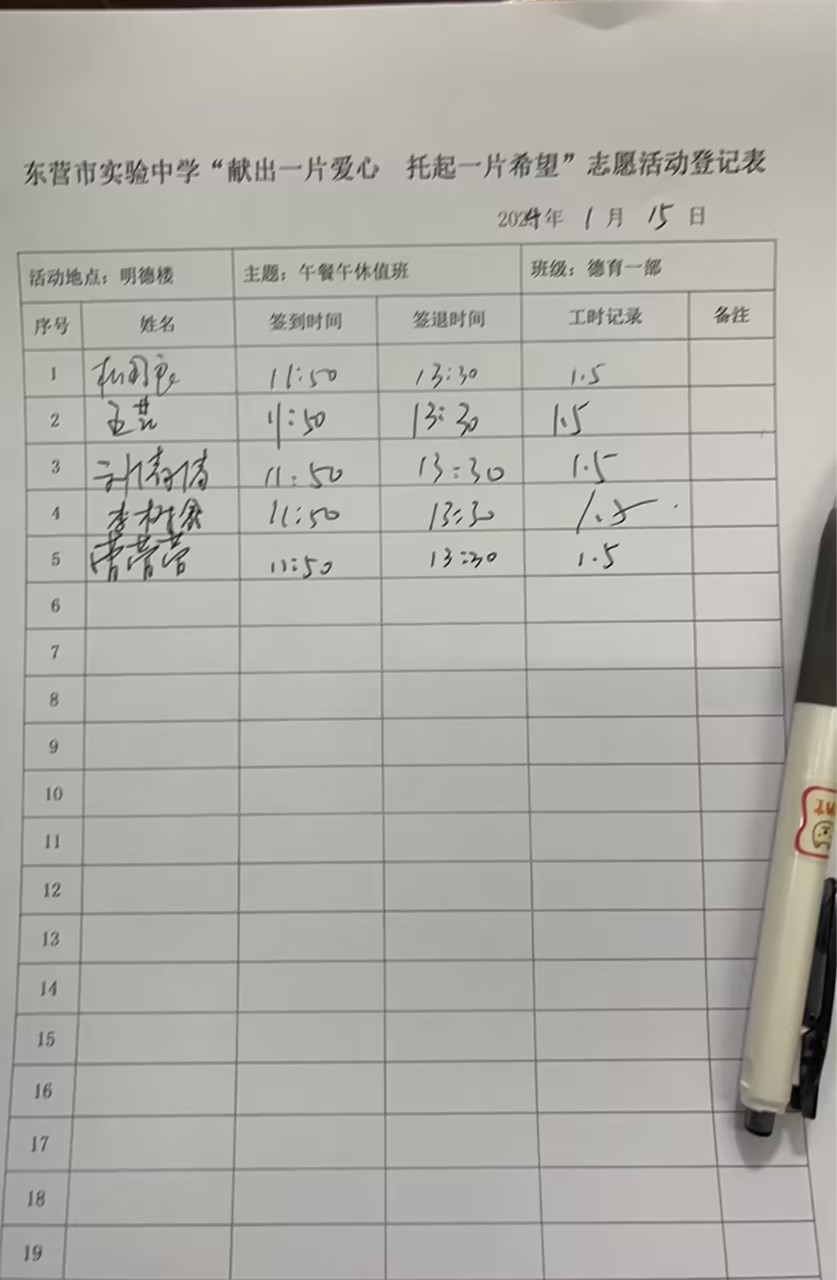 东营市实验中学“献出一片爱心 托起一片希望”志愿活动登记表
2024年 1月 15日
活动地点：明德楼 主题：午餐午休值班 班级：德育一部
序号 姓名 签到时间 签退时间 工时记录 备注
1 11:50 13:30 1.5
2 11:50 13:30 1.5
3 11:50 13:30 1.5
4 李树 11:50 13:30 1.5
5 11:50 13:30 1.5
6
7
8
9
10
11
12
13
14
15
16
17
18
19